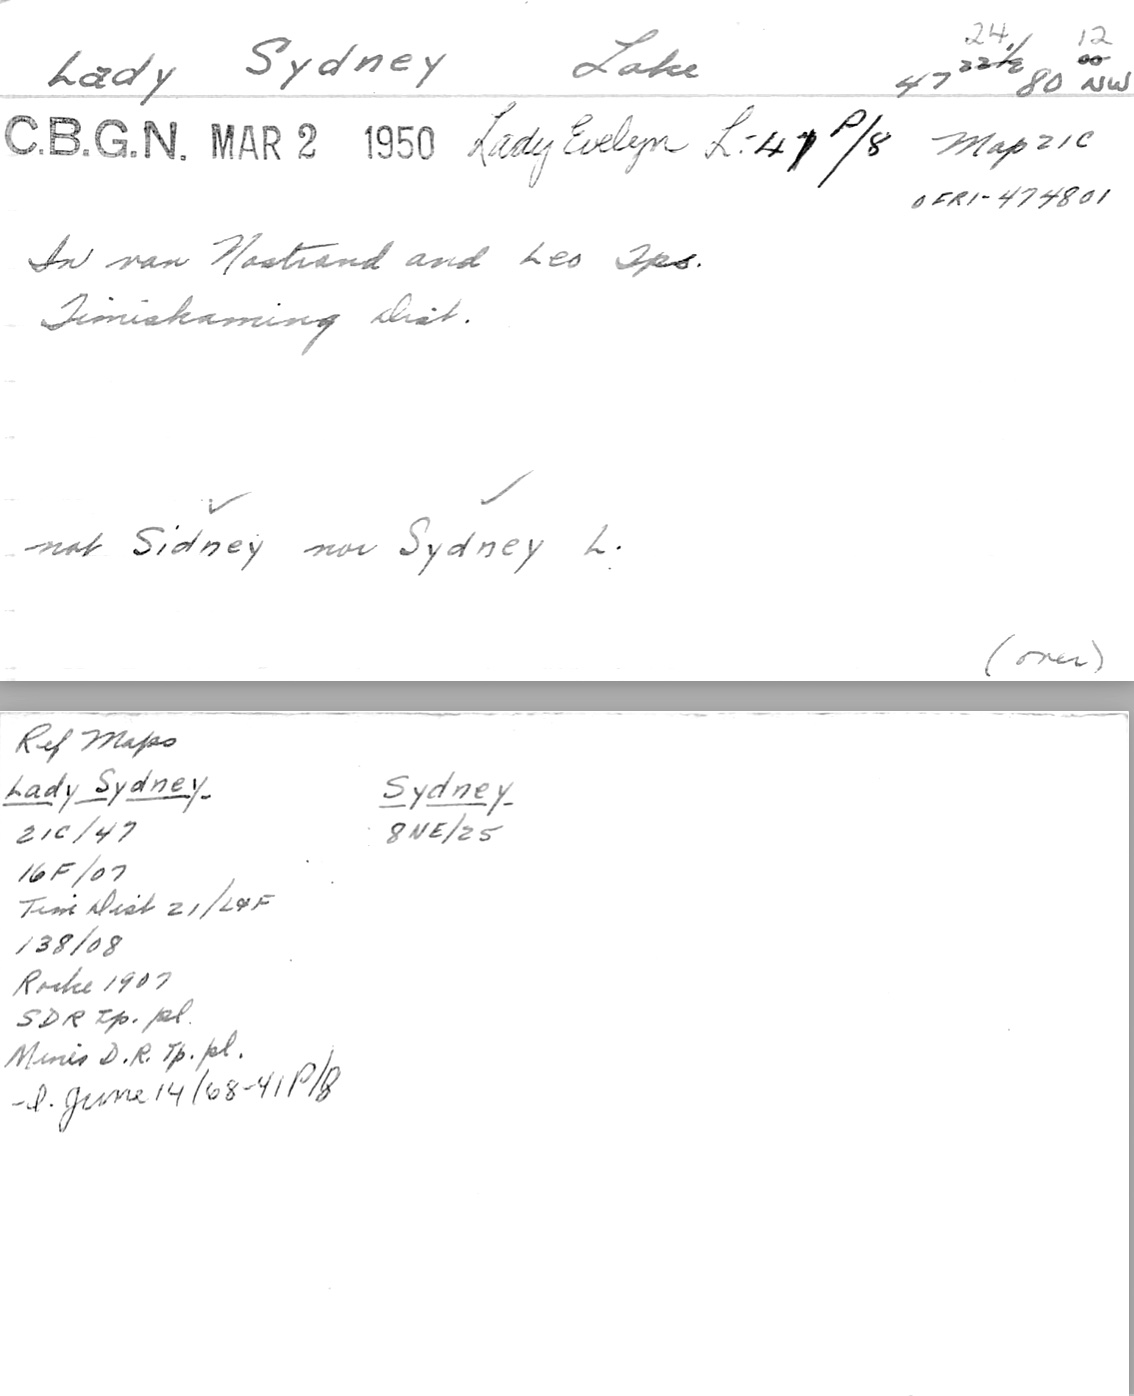 Lady Sydney Lake 47 24' 80 12
22½ 00 NW
C.B.G.N. MAR 2 1950 Lady Evelyn L.-41 P/8 Map 21C
OFRI-474801
In van Nostrand and Leo Tps.
Timiskaming Dist.
not Sidney nor Sydney L.
(over)
Ref Maps
Lady Sydney Sydney
21C/47 8NE/25
16F/07
Tim Dist 21/L&F
138/08
Rorke 1907
SDR Tp. pl.
Mines D.R. Tp. pl.
June 14/68-41P/8